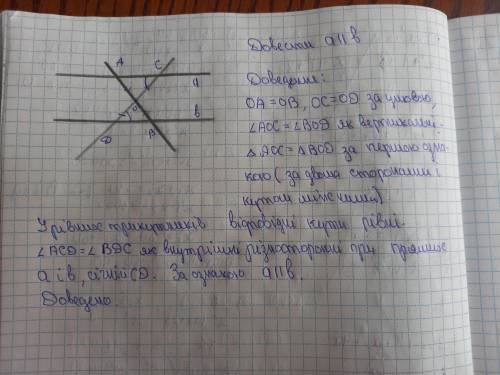 A C
a
O
b
D B
Довести a II b
Доведення:
OA = OB, OC = OD за умовою,
∠AOC = ∠BOD як вертикальні.
△AOC = △BOD за першою озна-
кою (за двома сторонами і
кутом між ними).
У рівних трикутників відповідні кути рівні.
∠ACD = ∠BDC як внутрішні різносторонні при прямих
a і b, січній CD. За ознакою a II b.
Доведено.